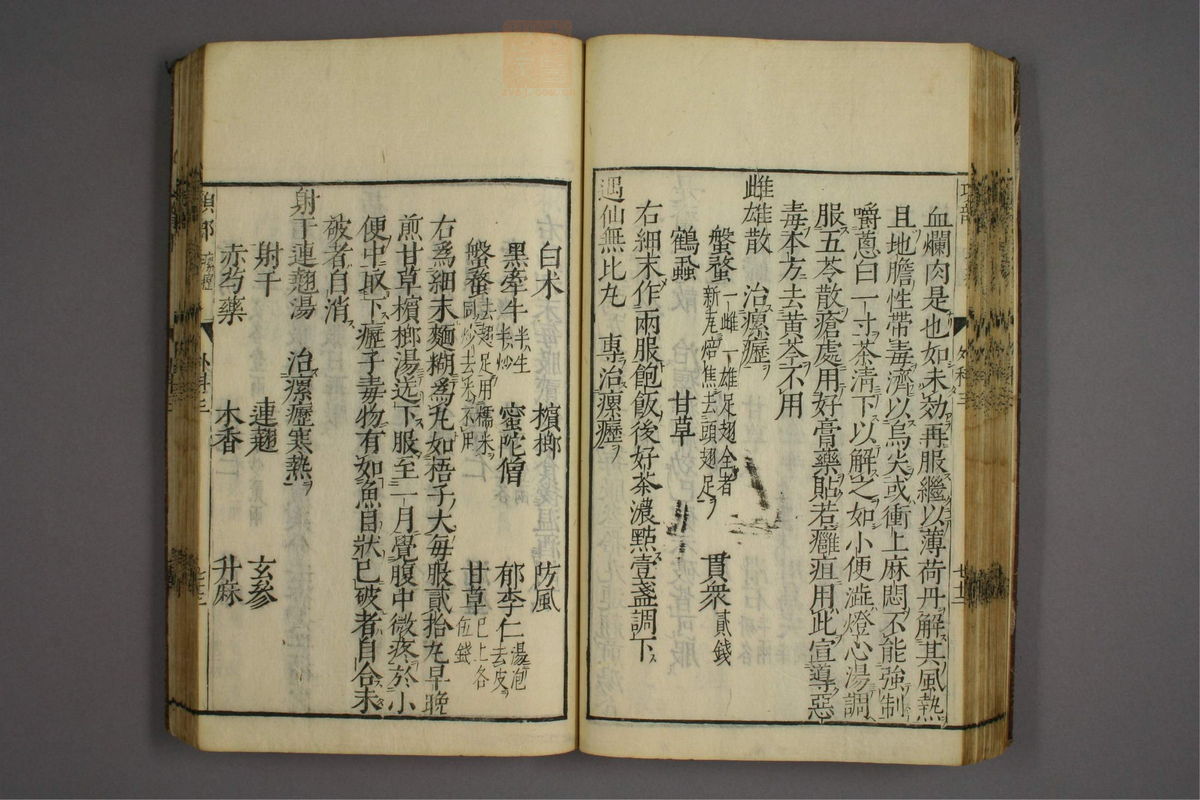 血爛肉是也如未効再服繼以薄荷丹解其風熱
且地膽性帶毒濟以烏尖或衝上麻悶不能強制
嚼蔥白一寸茶清下以解之如小便澁燈心湯調
服五苓散瘡處用好膏藥貼若癰疽用此宣導惡
毒本方去黄芩不用
雌雄散 治瘰癧
螌蝥 一雌一雄足翅全者新瓦焙焦去頭翅足 貫衆 貳錢
鶴蝨 甘草
右細末作兩服飽飯後好茶濃點壹盞調下
遇仙無比丸 專治瘰癧
白朮 檳榔 防風
黒牽牛 半生半炒 蜜陀僧 郁李仁 湯泡去皮
螌蝥 去翅足用糯米同炒去米不用 甘草 已上各伍錢
右爲細末麵糊爲丸如梧子大毎服貳拾丸早晚
煎甘草檳榔湯送下服至一月覺腹中微疼於小
便中取下癧子毒物有如魚目狀已破者自合未
破者自消
射干連翹湯 治瘰癧寒熱
射干 連翹 玄參
赤芍藥 木香 升麻
項部 瘰癧 外科三